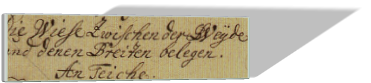 Die Wiese Zwischen der Weyde
und denen Breiten belegen.
An Teiche.